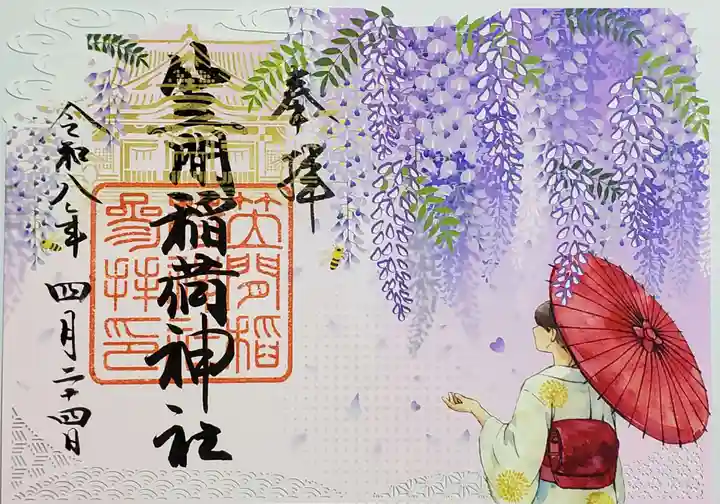 奉拝
笠間稲荷神社
笠間稲
荷神社
参拝印
令和八年四月二十四日